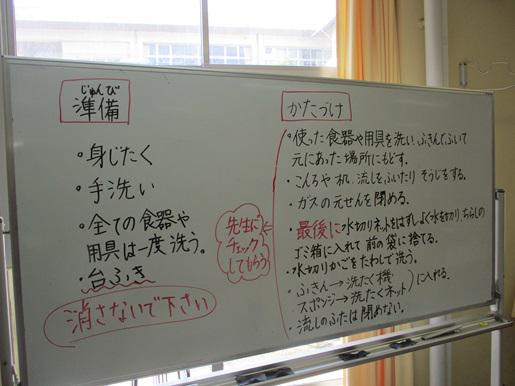 じゅんび
準備
・身じたく
・手洗い
・全ての食器や
用具は一度洗う。
・台ふき
消さないで下さい
先生に
チェック
してもらう
かたづけ
・使った食器や用具を洗い、ふきんでふいて
元にあった場所にもどす。
・こんろや机、流しをふいたりそうじをする。
・ガスの元せんを閉める。
・最後に水切りネットをはずしよく水を切り、ちらしの
ゴミ箱に入れて前の袋に捨てる。
・水切りかごをたわしで洗う。
・ふきん→洗たく機
スポンジ→洗たくネット に入れる。
・流しのふたは閉めない。